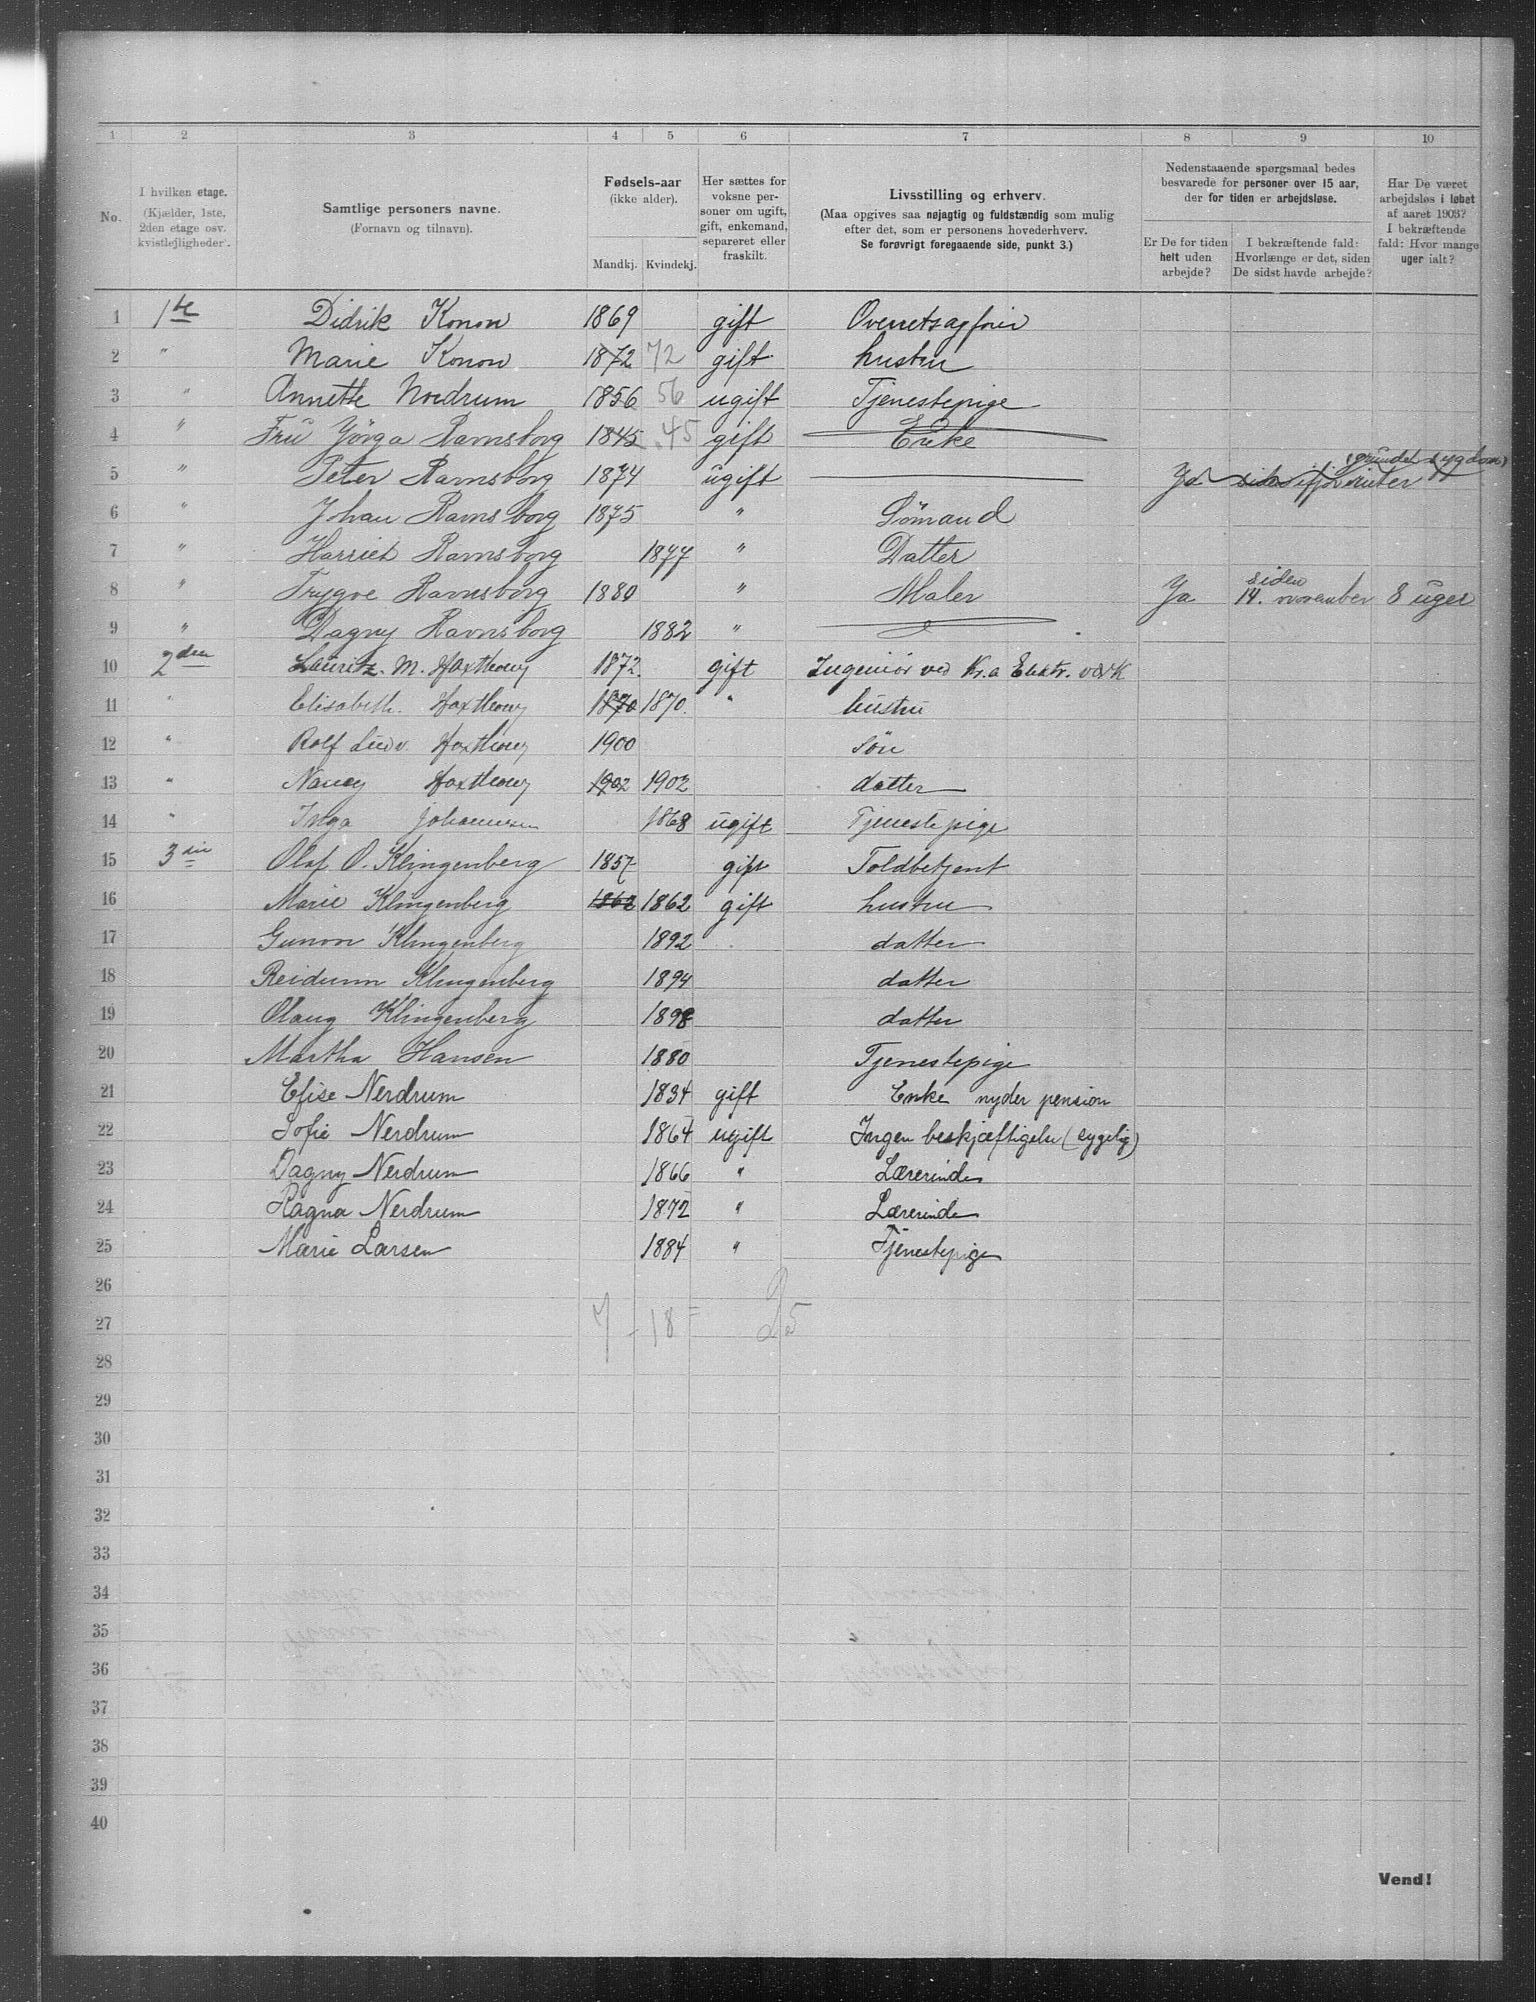 1 2 3 4 5 6 7 8 9 10
No.
I hvilken etage.
(Kjælder, 1ste,
2den etage osv.
kvistlejligheder).
Samtlige personers navne.
(Fornavn og tilnavn).
Fødsels-aar
(ikke alder).
Mandkj. Kvindekj.
Her sættes for
voksne per-
soner om ugift,
gift, enkemand,
separeret eller
fraskilt.
Livsstilling og erhverv.
(Maa opgives saa nøjagtig og fuldstændig som mulig
efter det, som er personens hovederhverv.
Se forøvrigt foregaaende side, punkt 3.)
Nedenstaaende spørgsmaal bedes
besvarede for personer over 15 aar,
der for tiden er arbejdsløse.
Er De for tiden
helt uden
arbejde?
I bekræftende fald:
Hvorlænge er det, siden
De sidst havde arbejde?
Har De været
arbejdsløs i løbet
af aaret 1903?
I bekræftende
fald: Hvor mange
uger ialt?
1 1ste Didrik Konow 1869 gift Overretsagfører
2 " Marie Konow 1872 72 gift hustru
3 " Annette Nordrum 1856 56 ugift Tjenestepige
4 " Fru Jørga Ravnsborg 1845 45 gift Enke
5 " Peter Ravnsborg 1874 ugift Ja siden ifjor vinter (grundet sygdom)
6 " Johan Ravnsborg 1875 " Sømand
7 " Harriet Ravnsborg 1877 " Datter
8 " Trygve Ravnsborg 1880 " Maler Ja siden 14. november 8 uger
9 " Dagny Ravnsborg 1882 "
10 2den Lauritz. M. Haxthow 1872. gift Ingeniør ved Kr.a Elektr. værk
11 " Elisabeth. Haxthow 1870 1870. " hustru
12 " Rolf Ludv. Haxthow 1900 søn
13 " Nancy Haxthow 1902 1902 datter
14 " Inga Johannesen 1868 ugift Tjenestepige
15 3die Olaf O. Klingenberg 1857 gift Toldbetjent
16 Marie Klingenberg 1862 1862 gift hustru
17 Gunvor Klingenberg 1892 datter
18 Reidunn Klingenberg 1894 datter
19 Olaug Klingenberg 1898 datter
20 Martha Hansen 1880 Tjenestepige
21 Elise Nerdrum 1834 gift Enke nyder pension
22 Sofie Nerdrum 1864 ugift Ingen beskjæftigelse (sygelig)
23 Dagny Nerdrum 1866 " Lærerinde
24 Ragna Nerdrum 1872 " Lærerinde
25 Marie Larsen 1884 " Tjenestepige
26
27 7 - 18 = 25
28
29
30
31
32
33
34
35
36
37
38
39
40
Vend!